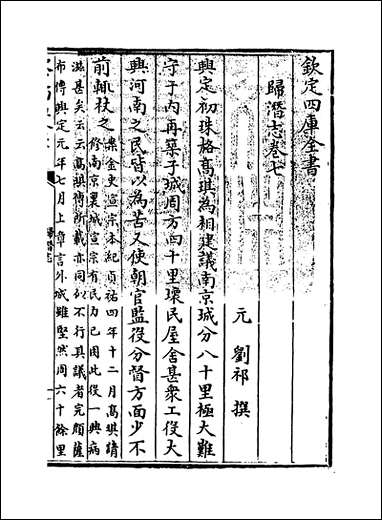 欽定四庫全書
歸潛志卷七
元 劉祁 撰
興定初珠格高琪為相建議南京城分八十里極大難
守于内再築子城周方四十里壞民屋舍甚衆工役大
興河南之民皆以為苦又使朝官監役分督方面少不
前輒杖之
案金史宣宗本紀貞祐四年十二月高琪請
修南京裏城宣宗有民力已困此役一興病
滋甚矣云云高琪傳所載亦同似不行其議者完顔薩
布傳興定元年七月上章言外城雖堅然周六十餘里
歸潛志